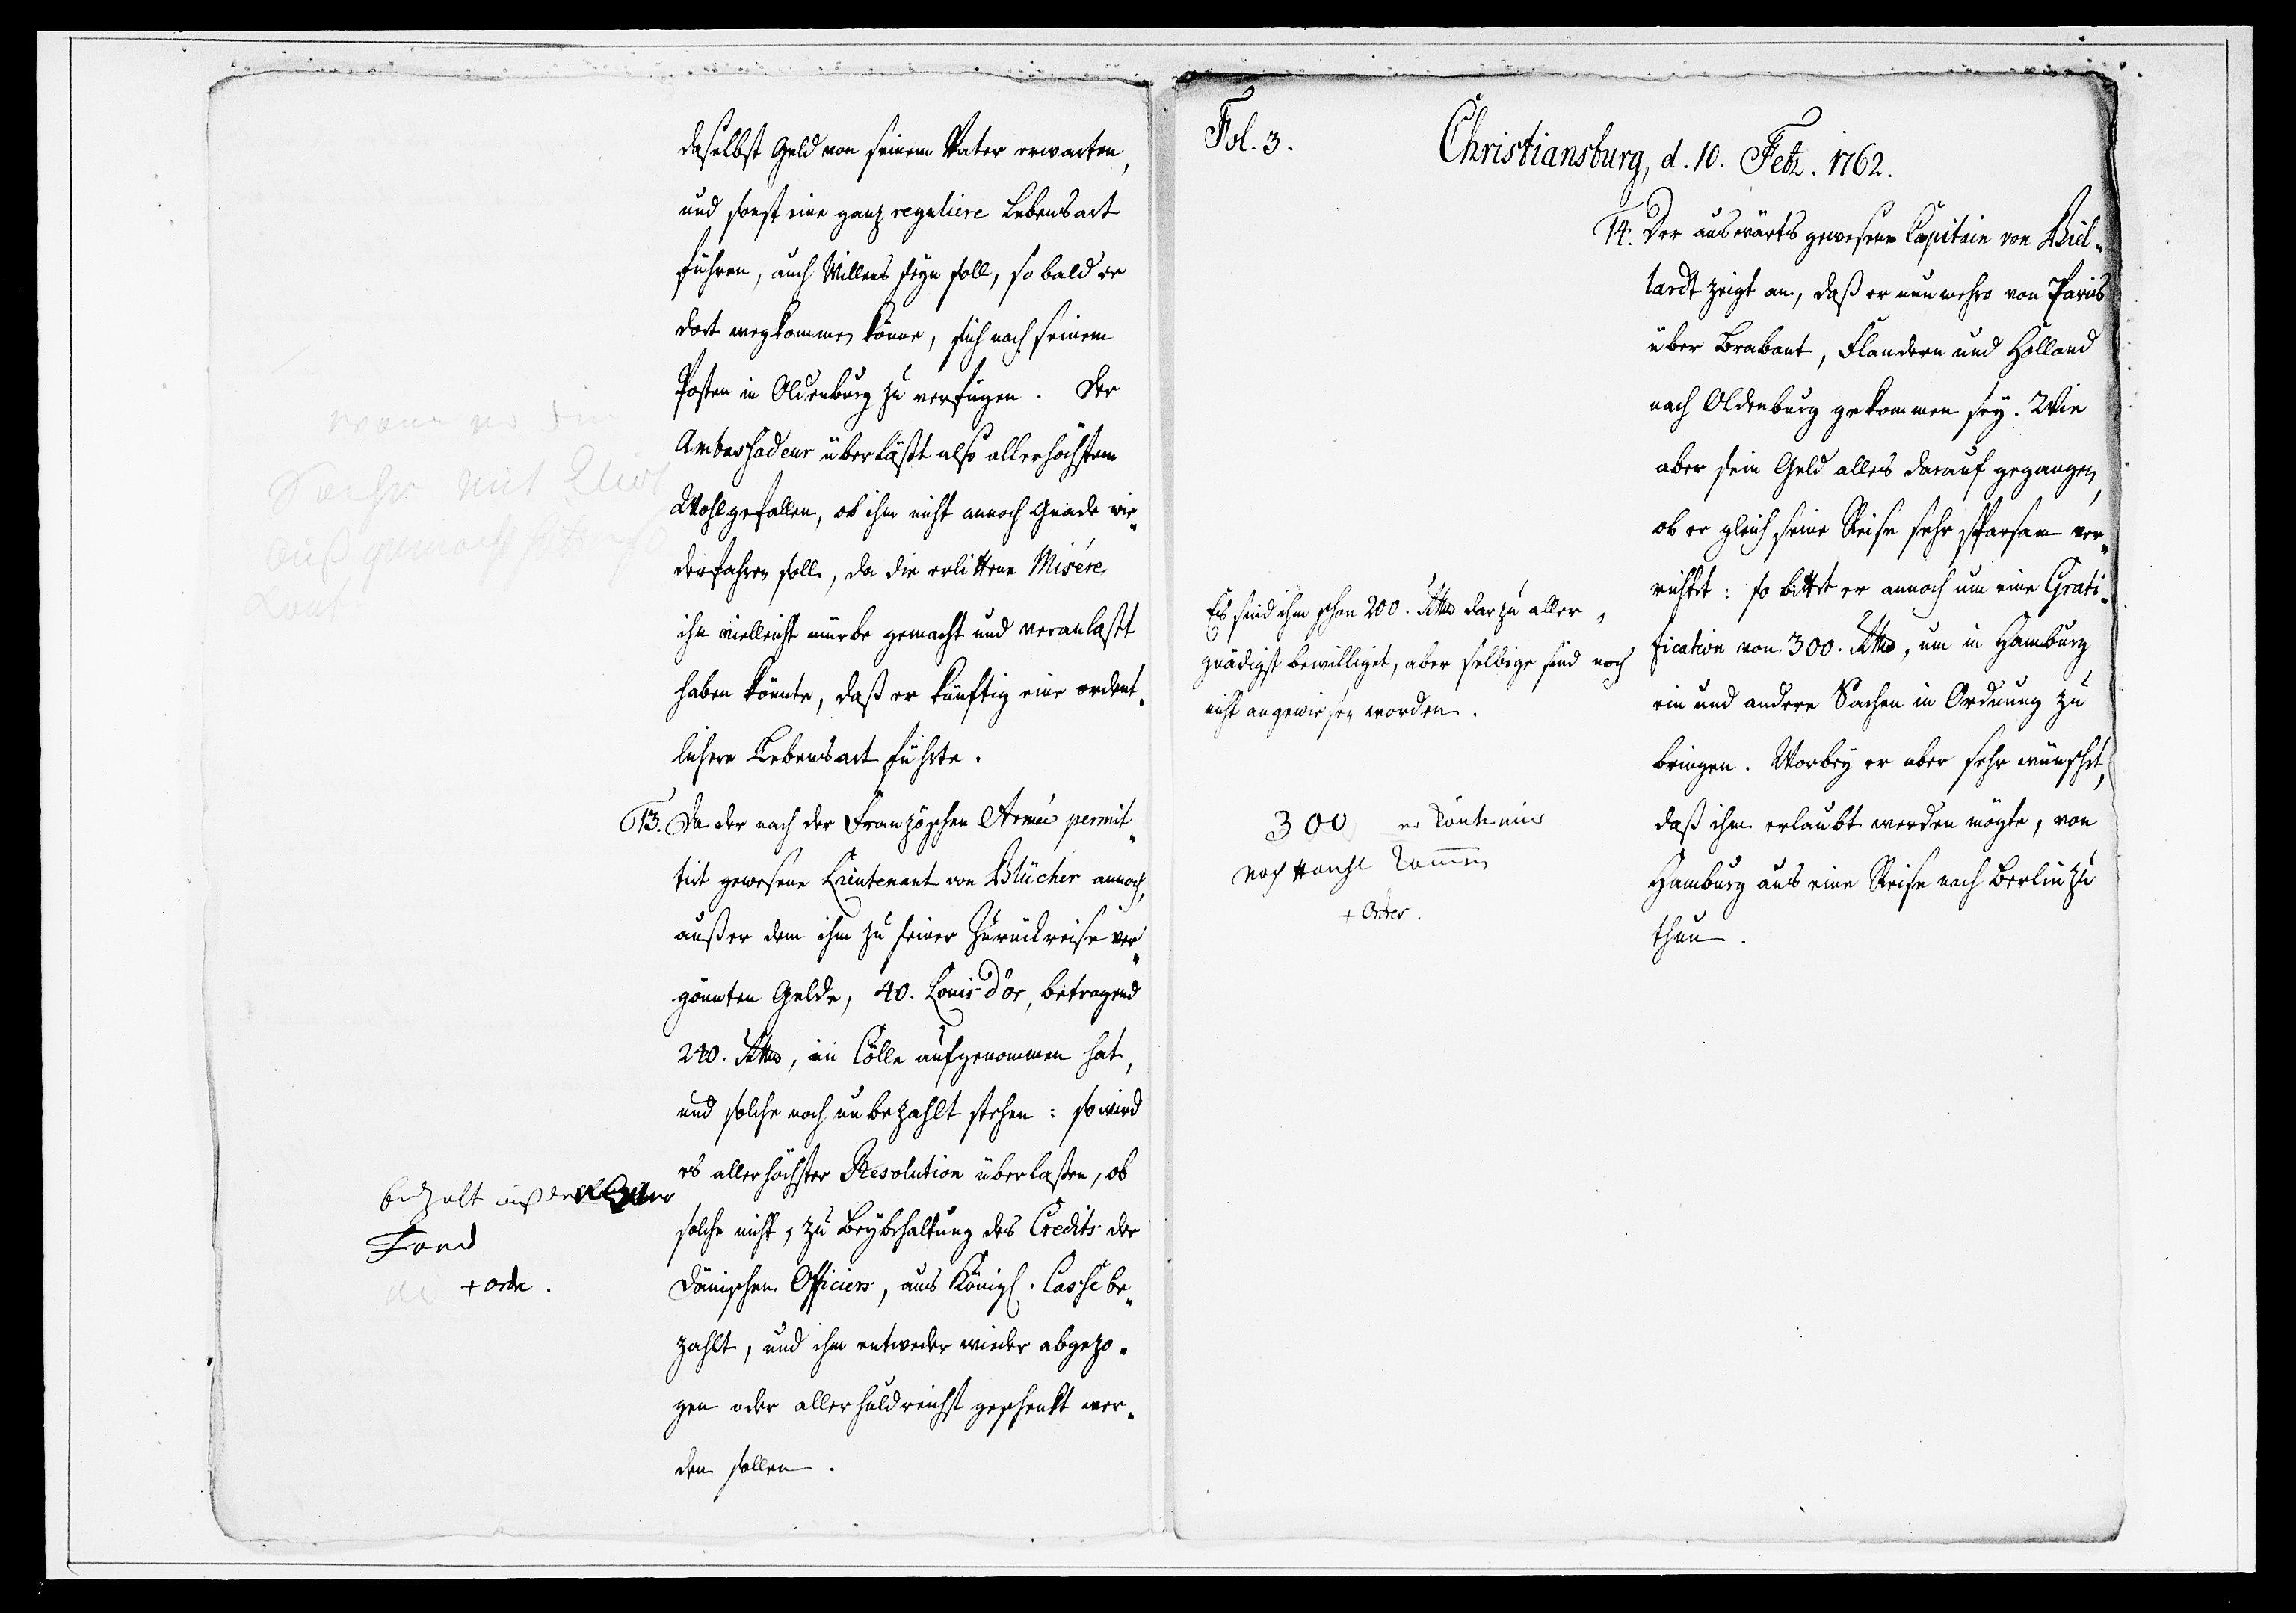 daselbst Geld von seinem Vater erwarten,
und sonst eine ganz reguliere Lebensart
führen, auch Willens seyn soll, so bald er
dort wegkommen könne, sich nach seinem
Posten in Oldenburg zu verfügen. Der
Ambassadeur überläßt also allerhöchstem
Wohlgefallen, ob ihm nicht annoch Gnade wie„
derfahren soll, da die erlittene Misére
ihn vielleicht mürbe gemacht und veranlaßt
haben könnte, daß er künftig eine ordent„
lichere Lebensart führte.
13. Da der nach der Französchen Armée permit„
tirt gewesene Lieutenant von Blücher annoch,
außer dem ihm zu seiner Zurückreise ver„
gönnten Gelde, 40. Louis d'or, betragend
240. Rthlr, in Cölln aufgenommen hat,
und solche noch unbezahlt stehen: so wird
es allerhöchster Resolution überlaßen, ob
solche nicht, zu Beybehaltung des Credits der
Dänischen Officiers, aus Königl. Casse be„
zahlt, und ihm entweder wieder abgezo„
gen oder allerhuldreichst geschenkt wer„
den sollen.
Fond
+ ordr.
Fol. 3.
Christiansburg, d. 10. Febr. 1762.
14. Der auswärts gewesene Capitain von Biel„
lardt zeigt an, daß er nunmehro von Paris
über Brabant, Flandern und Holland
nach Oldenburg gekommen sey. Wie
aber sein Geld alles darauf gegangen,
ob er gleich seine Reise sehr sparsam ver„
richtet: so bittet er annoch um eine Grati„
fication von 300. Rthlr, um in Hamburg
ein und andere Sachen in Ordnung zu
bringen. Worbey er aber sehr wünschet,
daß ihm erlaubt werden mögte, von
Hamburg aus eine Reise nach Berlin zu
thun.
Es sind ihm schon 200. Rthlr darzu aller„
gnädigst bewilliget, aber selbige sind noch
nicht angewiesen worden.
300 er könte nur
nach Hause kommen
+ Ordres.